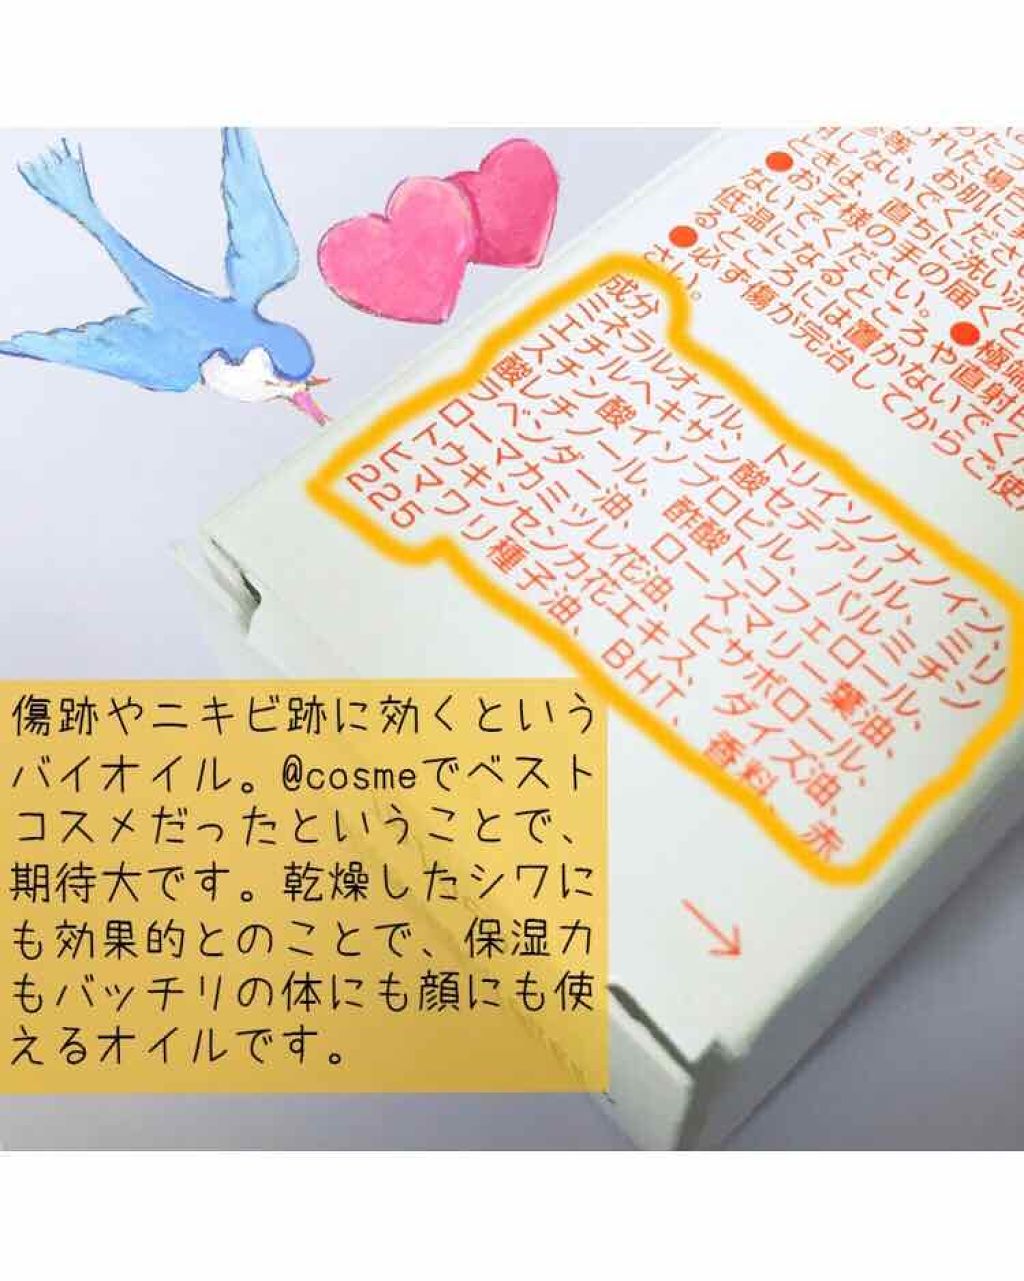 われた場合
等、お肌に異
しないでください
ときは、直ちに洗い流
●お子様の手の届くと
ないでください。●極端
低温になるところや直射日
るところには置かないでく
●必ず傷が完治してからご使
さい。
成分
ミネラルオイル、トリイソノナノイン、
エチルヘキサン酸セテアリル、ミリ
スチン酸イソプロピル、パルミチン
酸レチノール、酢酸トコフェロール、
ラベンダー油、ローズマリー葉油、
ローマカミツレ花油、ビサボロール、
トウキンセンカ花エキス、ダイズ油、
ヒマワリ種子油、BHT、香料、赤
225
傷跡やニキビ跡に効くという
バイオイル。@cosmeでベスト
コスメだったということで、
期待大です。乾燥したシワに
も効果的とのことで、保湿力
もバッチリの体にも顔にも使
えるオイルです。